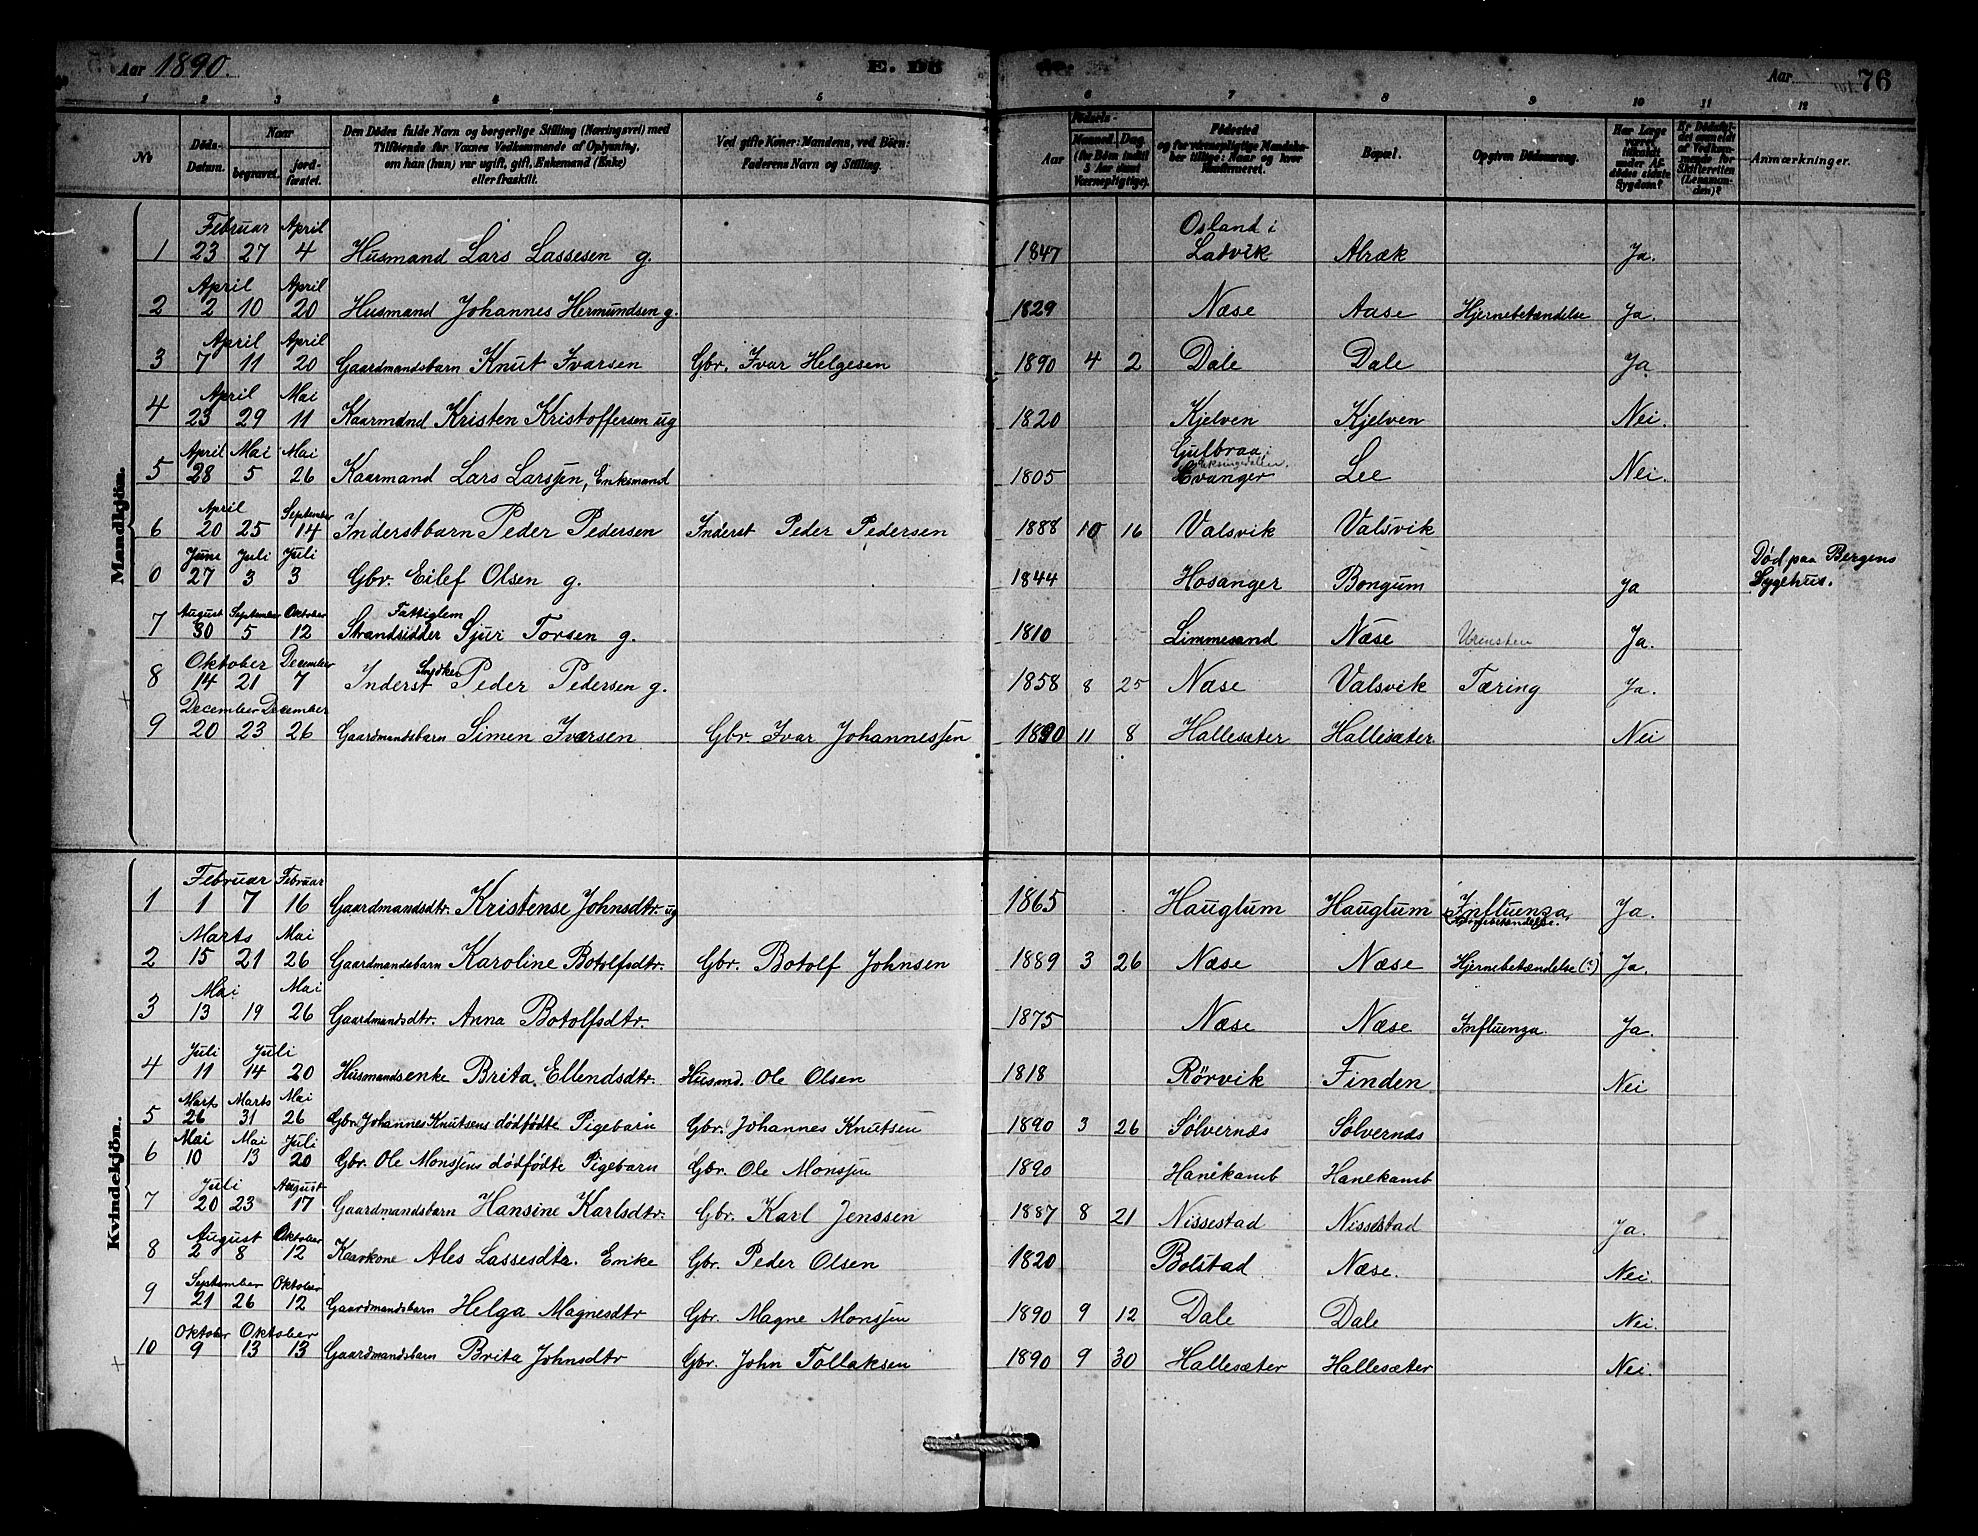 Aar 1890. E. Dö Aar 76
1 2 3 4 5 6 7 8 9 10 11 12
No Döds-Datum. Naar begravet. jordfæstet. Den Dödes fulde Navn og borgerlige Stilling (Næringsvei) med Tilföiende for Voxnes Vedkommende af Oplysning, om han (hun) var ugift, gift, Enkemand (Enke) eller fraskilt. Ved gifte Koner: Mandens, ved Börn: Faderens Navn og Stilling. Födsels- Aar Maaned. Dag. (for Börn indtil 3 Aar samt Værnepligtige). Födested og for værnepligtige Mandskaber tillige: Naar og hvor konfirmeret. Bopæl. Opgiven Dödsaarsag. Har Læge været tilkaldt under Afdödes sidste Sygdom? Er Dödsfaldet anmeldt af Vedkommende for Skifteretten (Lensmanden)? Anmærkninger.
Mandkjön.
Februar April Osland i
1 23 27 4 Husmand Lars Lassesen g. 1847 Ladvik Alræk Ja.
April April
2 2 10 20 Husmand Johannes Hermundsen g. 1829 Næse Aase Hjernebetændelse Ja.
April April
3 7 11 20 Gaardmandsbarn Knut Ivarsen Gbr. Ivar Helgesen 1890 4 2 Dale Dale Ja
April Mai
4 23 29 11 Kaarmand Kristen Kristoffersen ug 1820 Kjelven Kjelven Nei.
April Mai Mai Gulbraa i
5 28 5 26 Kaarmand Lars Larssen, Enkemand 1805 Evanger Lee Nei.
April September
6 20 25 14 Inderstbarn Peder Pedersen Inderst Peder Pedersen 1888 10 16 Valsvik Valsvik
Juni Juli Juli Død paa Bergens
0 27 3 3 Gbr. Eilef Olsen g. 1844 Hosanger Bongum Ja Sygehus.
August September Oktober Fattiglem
7 30 5 12 Strandsidder Sjur Torsen g. 1810 Limmesand Næse Urensten Ja.
Oktober December Snedker
8 14 21 7 Inderst Peder Pedersen g. 1858 8 25 Næse Valsvik Tæring Ja.
December December
9 20 23 26 Gaardmandsbarn Simen Ivarsen Gbr. Ivar Johannessen 1890 11 8 Hallesæter Hallesæter Nei
Kvindekjön.
Februar Februar
1 1 7 16 Gaardmandsdtr. Kristense Johnsdtr. ug 1865 Hauglum Hauglum Influenza, Ja.
Marts Mai
2 15 21 26 Gaardmandsbarn Karoline Botolfsdtr. Gbr. Botolf Johnsen 1889 3 26 Næse Næse Hjernebetændelse (?) Ja.
Mai Mai
3 13 19 26 Gaardmandsdtr. Anna Botolfsdtr. 1875 Næse Næse Influenza. Ja.
Juli Juli
4 11 14 20 Husmandsenke Brita Ellendsdtr. Husmd. Ole Olsen 1818 Rörvik Finden Nei
Mart Marts Mai
5 26 31 26 Gbr. Johannes Knutsens dødfødte Pigebarn Gbr. Johannes Knutsen 1890 3 26 Sølvernæs Sølvernæs
Mai Mai Juli
6 10 13 20 Gbr. Ole Monssens dødfødte Pigebarn Gbr. Ole Monssen 1890 Hanekamb Hanekamb
Juli August
7 20 23 17 Gaardmandsbarn Hansine Karlsdtr. Gbr. Karl Jenssen 1887 8 21 Nissestad Nissestad Ja.
August Oktober
8 2 8 12 Kaarkone Ales Lassesdtr. Enke Gbr. Peder Olsen 1820 Bolstad Næse. Nei.
September Oktober
9 21 26 12 Gaardmandsbarn Helga Magnesdtr Gbr. Magne Monssen 1890 9 12 Dale Dale Nei.
Oktober Oktober
10 9 13 13 Gaardmandsbarn Brita Johnsdtr Gbr. John Tollaksen 1890 9 30 Hallesæter Hallesæter Nei.